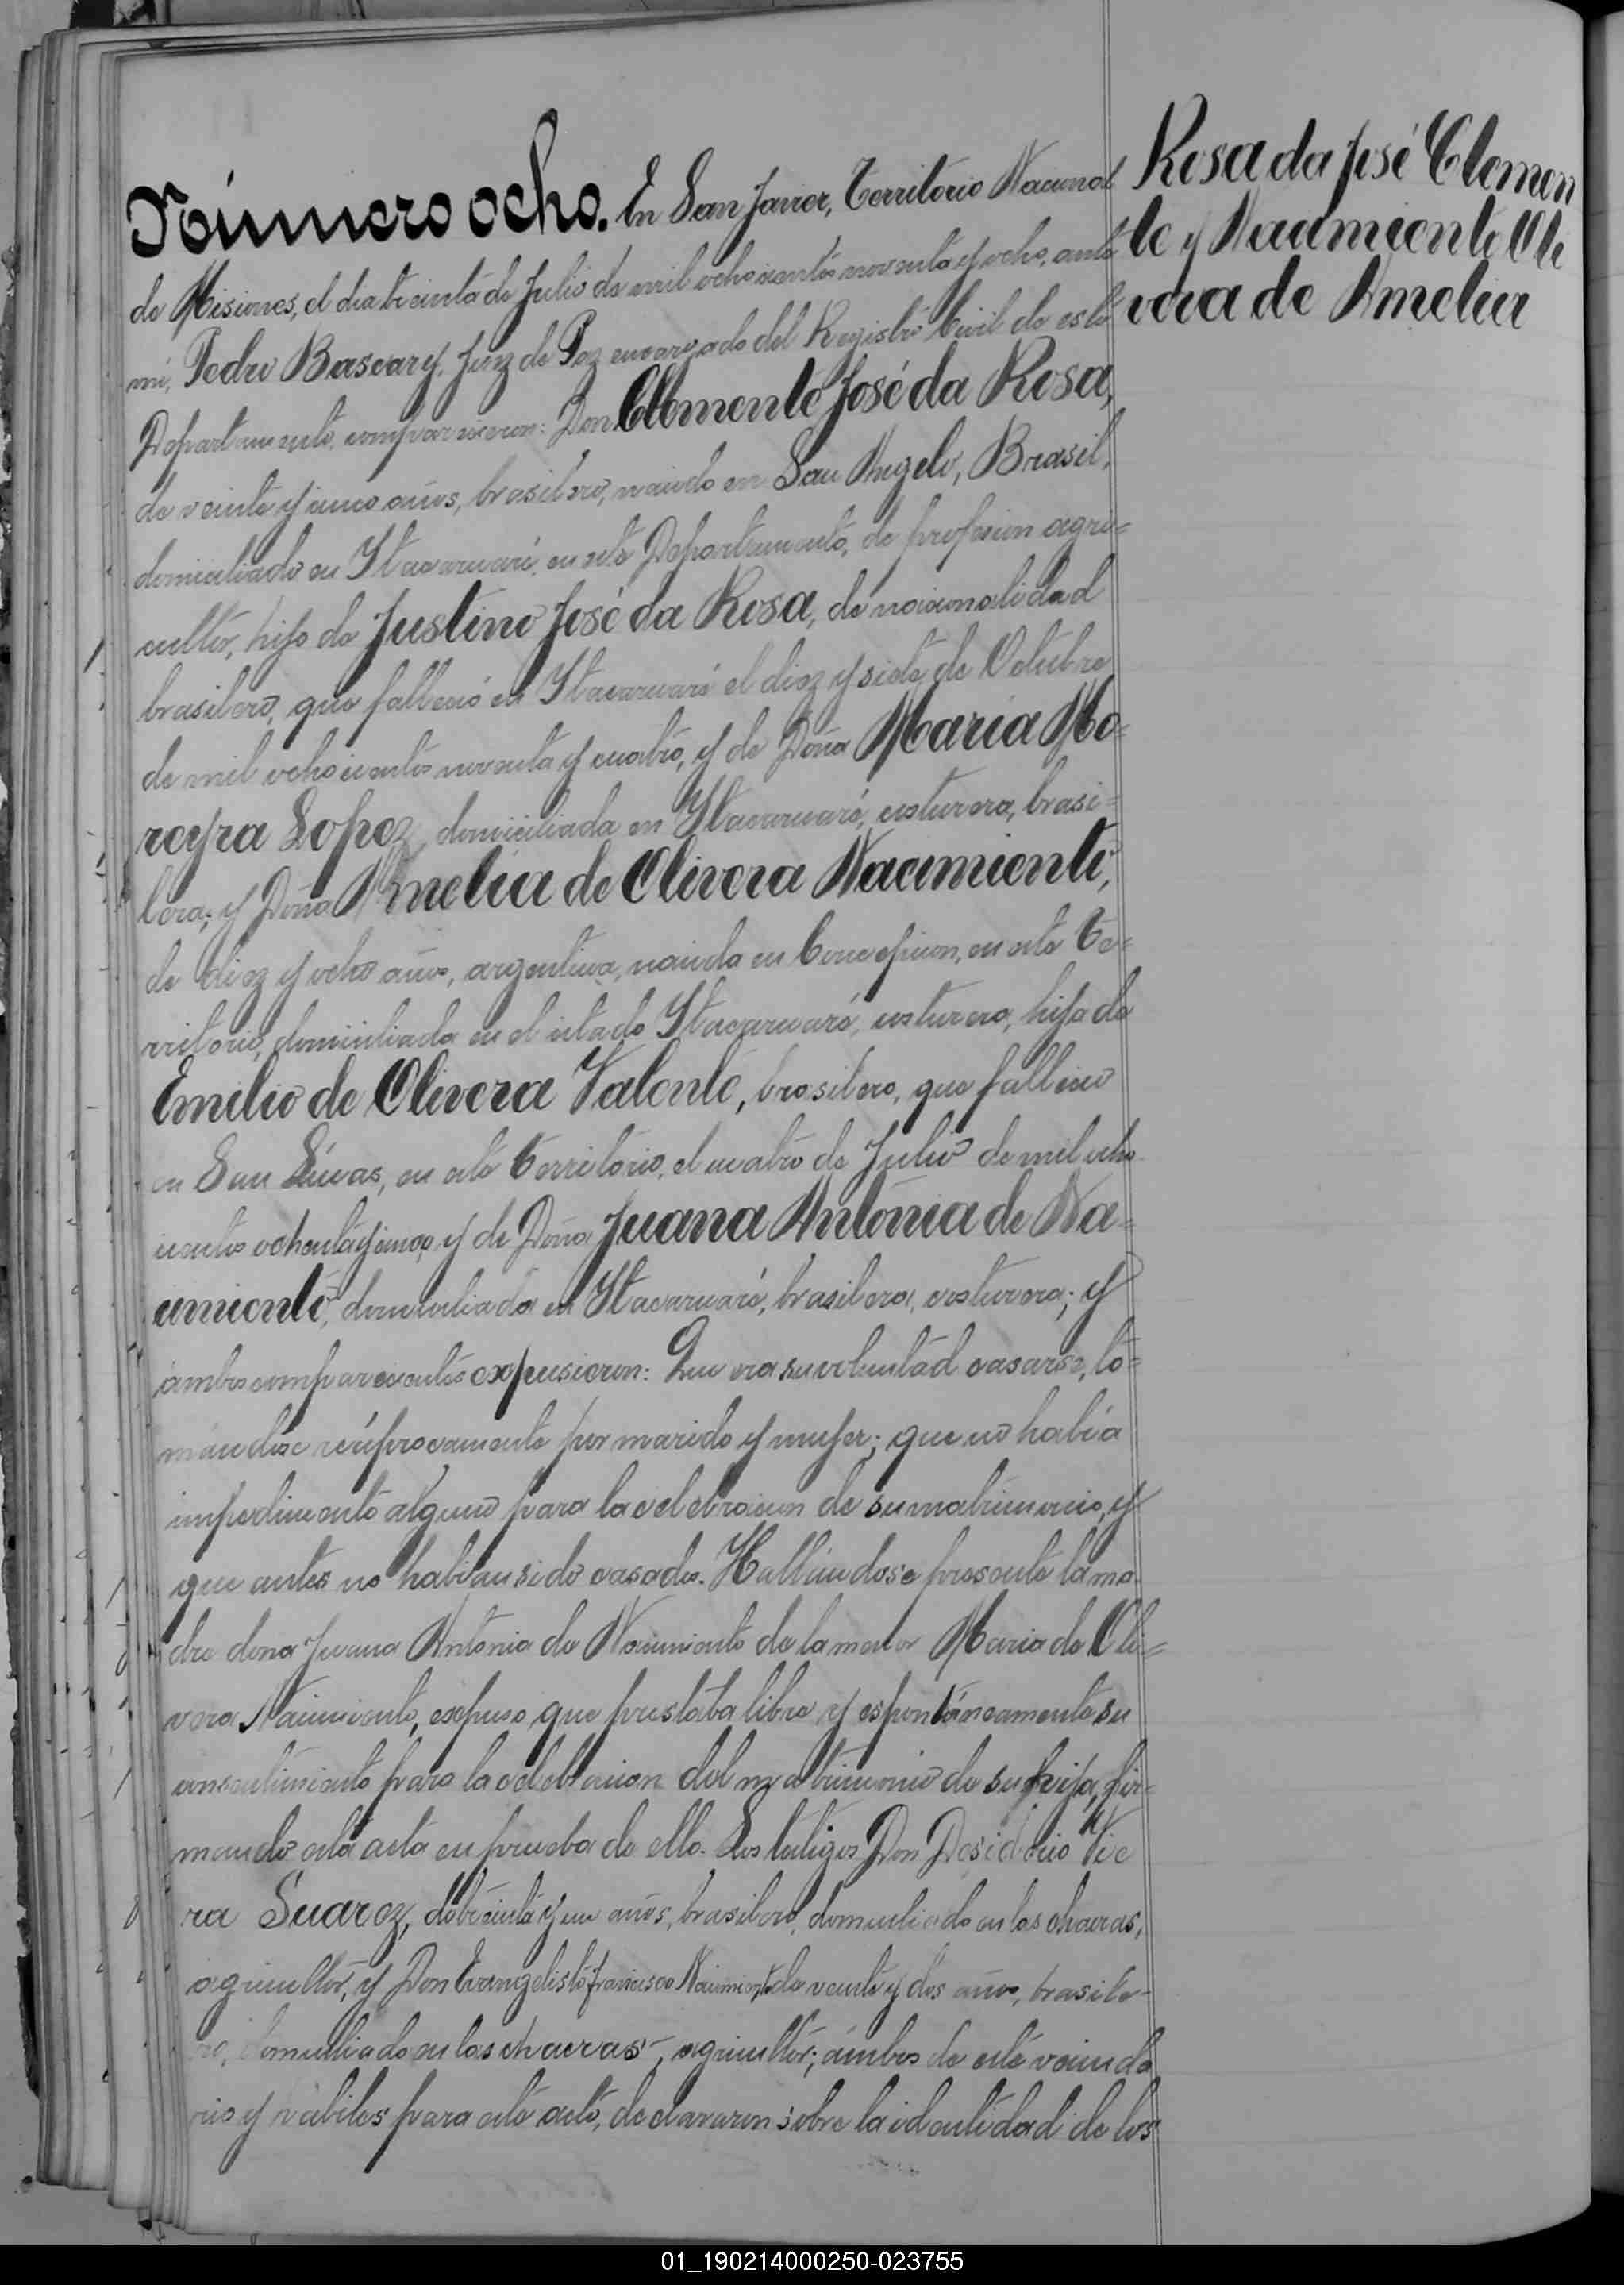 Número ocho. En San Javier, Territorio Nacional
de Misiones, el dia treinta de Julio de mil ochocientos noventa y ocho, ante
mi, Pedro Bascary, Juez de Paz encargado del Registro Civil de este
Departamento, comparecieron: Don Clemente José da Rosa,
de veinte y cinco años, brasilero, nacido en San Angelo, Brasil,
domiciliado en Itacaruaré, en este Departamento, de profesion agri=
cultor, hijo de Justino José da Rosa, de nacionalidad
brasilero, que falleció en Itacaruaré el diez y siete de Octubre
de mil ochocientos noventa y cuatro, y de Doña Maria Mo=
reyra Lopez, domiciliada en Itacaruaré, costurera, brasi=
lera; y Doña Amelia de Olivera Nacimiento,
de diez y ocho años, argentina, nacida en Concepcion, en este Te=
rritorio, domiciliada en el citado Itacaruaré, costurera, hija de
Emilio de Olivera Valente, brasilero, que fallecio
en San Lúcas, en este Territorio, el cuatro de Julio de mil ocho
cientos ochenta y cinco, y de Doña Juana Antonia de Na=
cimiento, domiciliada en Itacaruaré, brasilera, costurera; y
ambos comparecientes expusieron: Que era su voluntad casarse, to=
mándose recíprocamente por marido y mujer; que no había
impedimento alguno para la celebracion de su matrimonio, y
que antes no habian sido casados. Hallándose presente la ma
dre dona Juana Antonia de Nacimiento de la menor Maria de Oli=
vera Nacimiento, expuso que prestaba libre y espontáneamente su
consentimiento para la celebracion del matrimonio de su hija, fir=
mando esta acta en prueba de ello. Los testigos Don Desiderio Vie
ra Suarez, de treinta y un años, brasilero, domiciliado en las chacras,
agricultor, y Don Evangelisto Francisco Nacimiento, de veinte y dos años, brasile=
ro, domiciliado en las chacras, agricultor; ámbos de este vecinda
rio y habiles para este acto, declararon sobre la identidad de los
Rosa da José Clemen
te y Nacimiento Oli
vera de Amelia
01_190214000250-023755